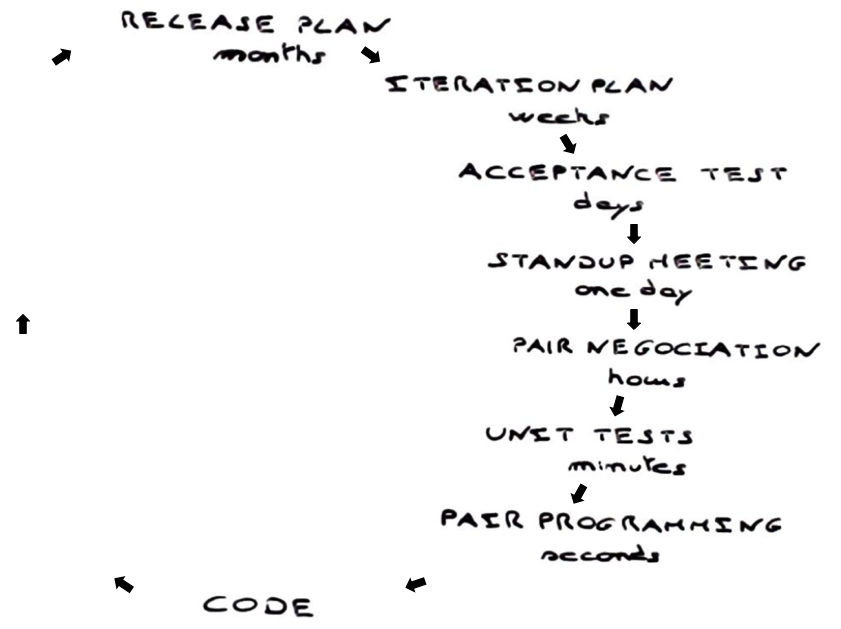 RELEASE PLAN
months
ITERATION PLAN
weeks
ACCEPTANCE TEST
days
STANDUP MEETING
one day
PAIR NEGOCIATION
hours
UNIT TESTS
minutes
PAIR PROGRAMMING
seconds
CODE